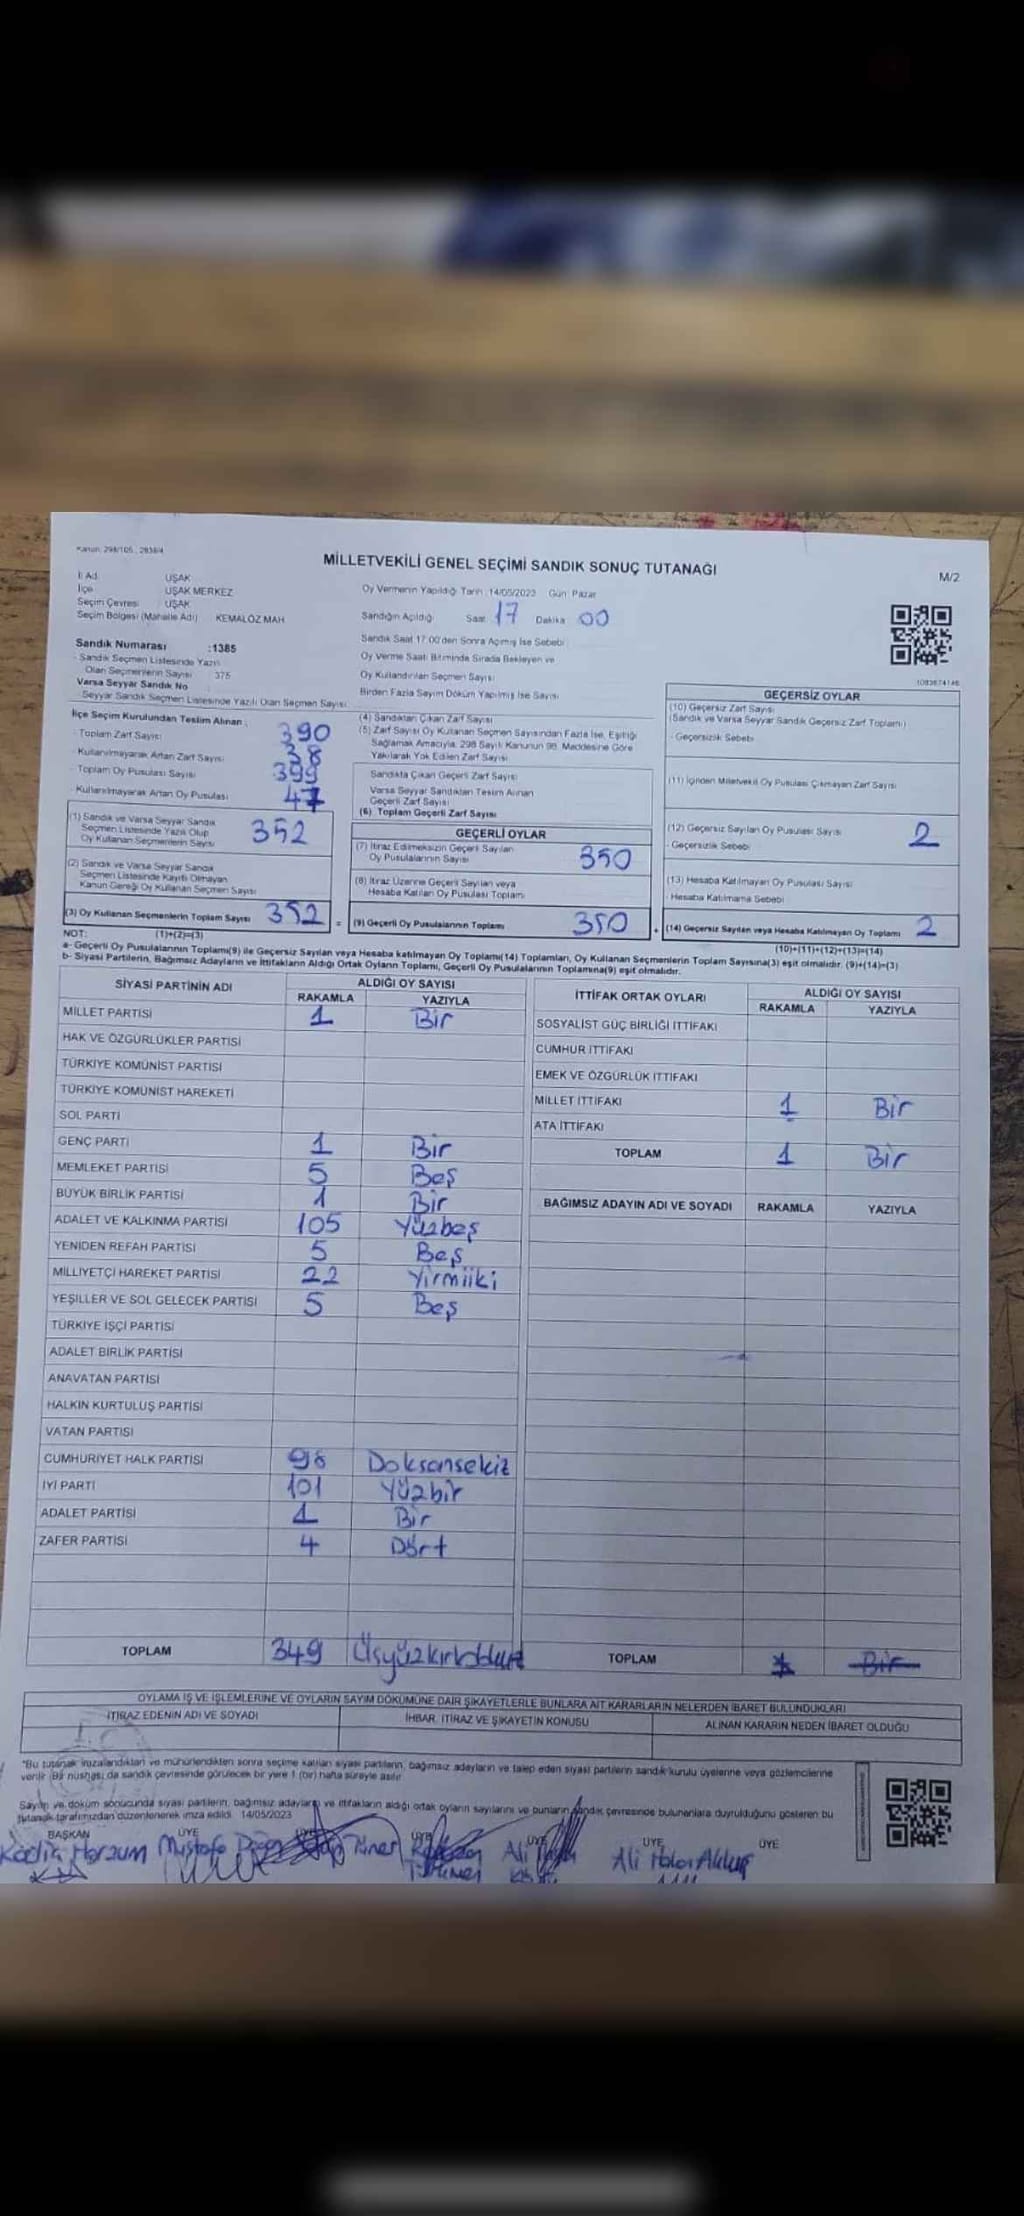 Kanun: 298/105, 2839/4
MİLLETVEKİLİ GENEL SEÇİMİ SANDIK SONUÇ TUTANAĞI
M/2
İl Adı UŞAK
İlçe UŞAK MERKEZ
Seçim Çevresi UŞAK
Seçim Bölgesi (Mahalle Adı) KEMALÖZ MAH
Oy Vermenin Yapıldığı Tarih: 14/05/2023 Gün: Pazar
Sandığın Açıldığı Saat 17 Dakika 00
Sandık Numarası :1385
- Sandık Seçmen Listesinde Yazılı
Olan Seçmenlerin Sayısı 375
Varsa Seyyar Sandık No
- Seyyar Sandık Seçmen Listesinde Yazılı Olan Seçmen Sayısı
Sandık Saat 17:00'den Sonra Açılmış İse Sebebi
Oy Verme Saati Bitiminde Sırada Bekleyen ve
Oy Kullandırılan Seçmen Sayısı
Birden Fazla Sayım Döküm Yapılmış İse Sayısı
İlçe Seçim Kurulundan Teslim Alınan;
- Toplam Zarf Sayısı 390
- Kullanılmayarak Artan Zarf Sayısı 38
- Toplam Oy Pusulası Sayısı 399
- Kullanılmayarak Artan Oy Pusulası 47
(1) Sandık ve Varsa Seyyar Sandık
Seçmen Listesinde Yazılı Olup
Oy Kullanan Seçmenlerin Sayısı 352
(2) Sandık ve Varsa Seyyar Sandık
Seçmen Listesinde Kayıtlı Olmayan
Kanun Gereği Oy Kullanan Seçmen Sayısı
(3) Oy Kullanan Seçmenlerin Toplam Sayısı 352 =
(4) Sandıktan Çıkan Zarf Sayısı
(5) Zarf Sayısı Oy Kullanan Seçmen Sayısından Fazla İse, Eşitliği
Sağlamak Amacıyla, 298 Sayılı Kanunun 98. Maddesine Göre
Yakılarak Yok Edilen Zarf Sayısı
Sandıkta Çıkan Geçerli Zarf Sayısı
Varsa Seyyar Sandıktan Teslim Alınan
Geçerli Zarf Sayısı
(6) Toplam Geçerli Zarf Sayısı
GEÇERLİ OYLAR
(7) İtiraz Edilmeksizin Geçerli Sayılan
Oy Pusulalarının Sayısı 350
(8) İtiraz Üzerine Geçerli Sayılan veya
Hesaba Katılan Oy Pusulası Toplamı
(9) Geçerli Oy Pusulalarının Toplamı 350 +
1083674146
GEÇERSİZ OYLAR
(10) Geçersiz Zarf Sayısı
(Sandık ve Varsa Seyyar Sandık Geçersiz Zarf Toplamı)
- Geçersizlik Sebebi
(11) İçinden Milletvekili Oy Pusulası Çıkmayan Zarf Sayısı
(12) Geçersiz Sayılan Oy Pusulası Sayısı 2
- Geçersizlik Sebebi
(13) Hesaba Katılmayan Oy Pusulası Sayısı
- Hesaba Katılmama Sebebi
(14) Geçersiz Sayılan veya Hesaba Katılmayan Oy Toplamı 2
NOT: (1)+(2)=(3) (10)+(11)+(12)+(13)=(14)
a- Geçerli Oy Pusulalarının Toplamı(9) ile Geçersiz Sayılan veya Hesaba katılmayan Oy Toplamı(14) Toplamları, Oy Kullanan Seçmenlerin Toplam Sayısına(3) eşit olmalıdır. (9)+(14)=(3)
b- Siyasi Partilerin, Bağımsız Adayların ve İttifakların Aldığı Ortak Oyların Toplamı, Geçerli Oy Pusulalarının Toplamına(9) eşit olmalıdır.
SİYASİ PARTİNİN ADI ALDIĞI OY SAYISI
RAKAMLA YAZIYLA
MİLLET PARTİSİ 1 Bir
HAK VE ÖZGÜRLÜKLER PARTİSİ
TÜRKİYE KOMÜNİST PARTİSİ
TÜRKİYE KOMÜNİST HAREKETİ
SOL PARTİ
GENÇ PARTİ 1 Bir
MEMLEKET PARTİSİ 5 Beş
BÜYÜK BİRLİK PARTİSİ 1 Bir
ADALET VE KALKINMA PARTİSİ 105 Yüzbeş
YENİDEN REFAH PARTİSİ 5 Beş
MİLLİYETÇİ HAREKET PARTİSİ 22 Yirmiiki
YEŞİLLER VE SOL GELECEK PARTİSİ 5 Beş
TÜRKİYE İŞÇİ PARTİSİ
ADALET BİRLİK PARTİSİ
ANAVATAN PARTİSİ
HALKIN KURTULUŞ PARTİSİ
VATAN PARTİSİ
CUMHURİYET HALK PARTİSİ 98 Doksansekiz
İYİ PARTİ 101 Yüzbir
ADALET PARTİSİ 1 Bir
ZAFER PARTİSİ 4 Dört
TOPLAM 349
İTTİFAK ORTAK OYLARI ALDIĞI OY SAYISI
RAKAMLA YAZIYLA
SOSYALİST GÜÇ BİRLİĞİ İTTİFAKI
CUMHUR İTTİFAKI
EMEK VE ÖZGÜRLÜK İTTİFAKI
MİLLET İTTİFAKI 1 Bir
ATA İTTİFAKI
TOPLAM 1 Bir
BAĞIMSIZ ADAYIN ADI VE SOYADI RAKAMLA YAZIYLA
TOPLAM Bir
OYLAMA İŞ VE İŞLEMLERİNE VE OYLARIN SAYIM DÖKÜMÜNE DAİR ŞİKAYETLERLE BUNLARA AİT KARARLARIN NELERDEN İBARET BULUNDUKLARI
İTİRAZ EDENİN ADI VE SOYADI İHBAR, İTİRAZ VE ŞİKAYETİN KONUSU ALINAN KARARIN NEDEN İBARET OLDUĞU
"Bu tutanak imzalandıktan ve mühürlendikten sonra seçime katılan siyasi partilerin, bağımsız adayların ve talep eden siyasi partilerin sandık kurulu üyelerine veya gözlemcilerine
verilir. Bir nüshası da sandık çevresinde görülecek bir yere 1 (bir) hafta süreyle asılır.
Sayım ve döküm sonucunda siyasi partilerin, bağımsız adayların ve ittifakların aldığı ortak oyların sayılarını ve bunların sandık çevresinde bulunanlara duyrulduğunu gösteren bu
tutanak tarafımızdan düzenlenerek imza edildi. 14/05/2023
BAŞKAN ÜYE ÜYE ÜYE ÜYE ÜYE ÜYE
Mustafa Ali Ali